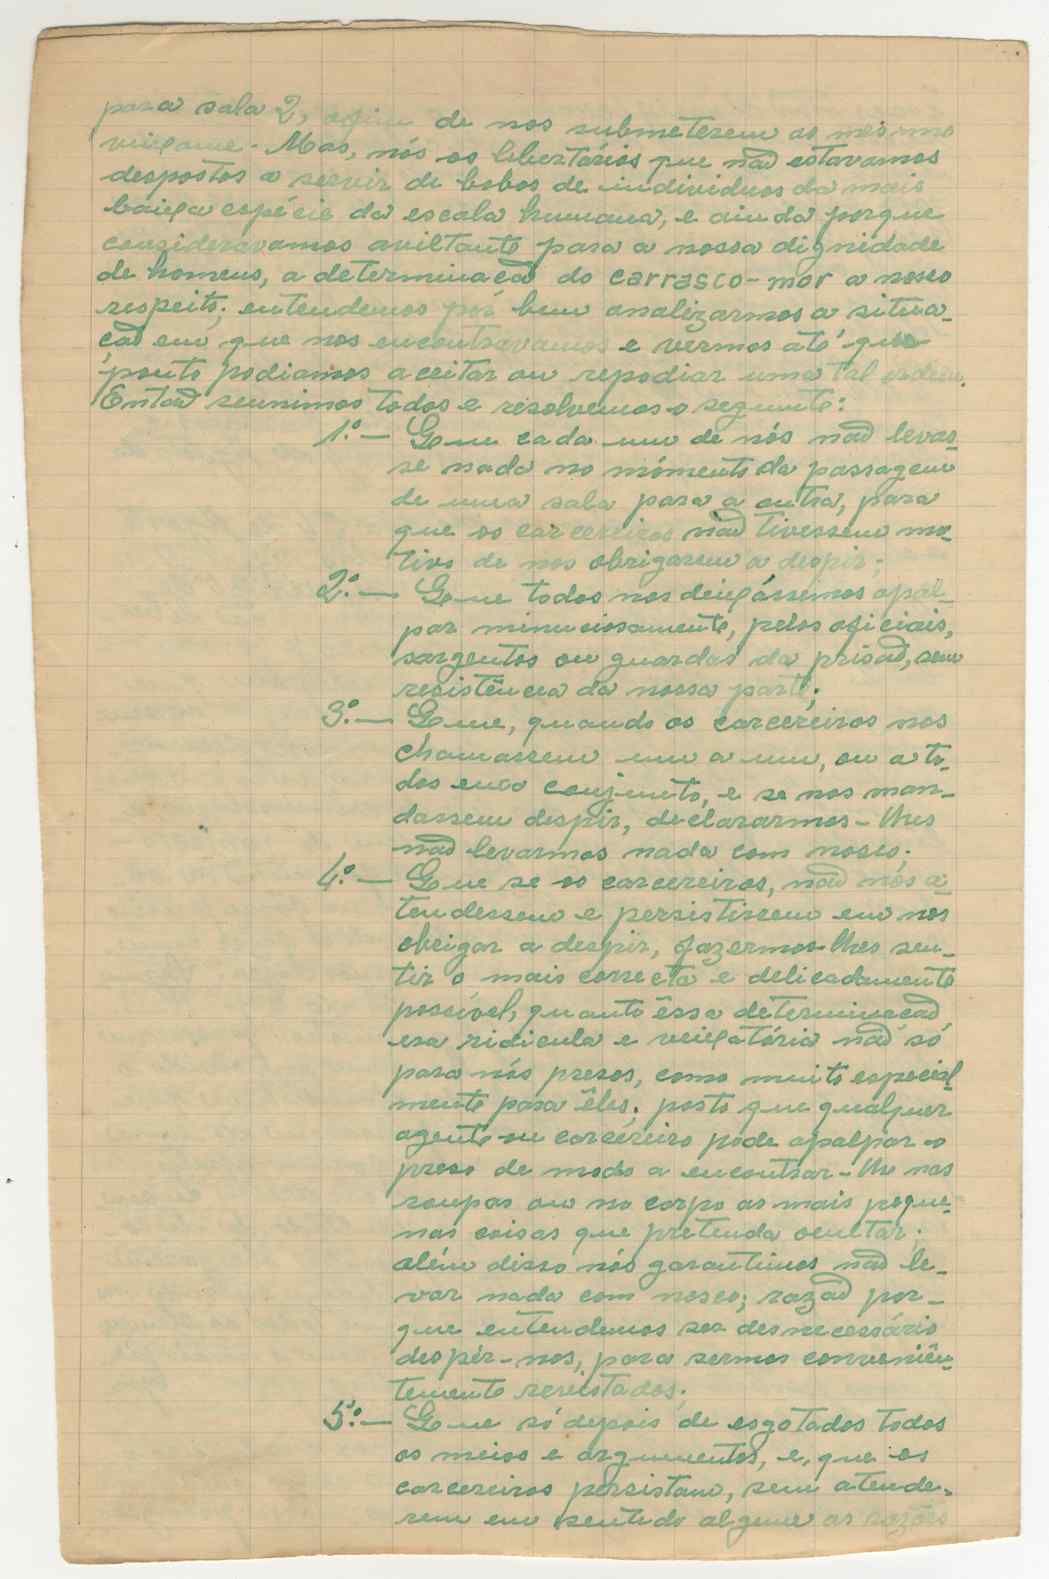 para sala 2, afim de nos submeterem ao mesmo
veixame. Mas, nós os libertários que não estavamos
despostos a servir de bobos de individuos da mais
baixa espécie da escala humana, e ainda porque
consideravamos aviltante para a nossa dignidade
de homens, a determinação do carrasco-mor a nosso
respeito; entendemos por bem analizarmos a situa-
ção em que nos encontravamos e vermos até que
ponto podiamos aceitar ou repodiar uma tal ordem.
Então reunimos todos e resolvemos o segunte:
1.º — Que cada um de nós não levas-
se nada no mómento da passagem
de uma sala para a outra, para
que os carcereiros não tivessem mo-
tivo de nos obrigarem a despir;
2.º — Que todos nos deixássimos apal-
par minuciosamente, pelos oficiais,
sargentos ou guardas da prisão, sem
resistência da nossa parte;
3.º — Que, quando os carcereiros nos
chamassem um a um, ou a to-
dos em conjunto, e se nos man-
dassem despir, declararmos-lhes
não levarmos nada com nosco;
4.º — Que se os carcereiros, não nós a-
tendessem e persistissem em nos
obrigar a despir, fazermos-lhes sen-
tir o mais correcta e delicadamente
possível, quanto êssa determinação
era ridicula e veixatória não só
para nós presos, como muito especial-
mente para êles; posto que qualquer
agente ou carcereiro póde apalpar o
preso de modo a encontrar-lhe nas
roupas ou no corpo as mais peque-
nas coisas que pretenda ocultar;
além disso nós garantimos não le-
var nada com nosco; razão por-
que entendemos ser desnecessário
despir-nos, para sermos conveniên-
temente revistados;
5.º — Que só depois de esgotados todos
os meios e argumentos, e, que os
carcereiros persistam, sem atende-
rem em sentido algum as razões